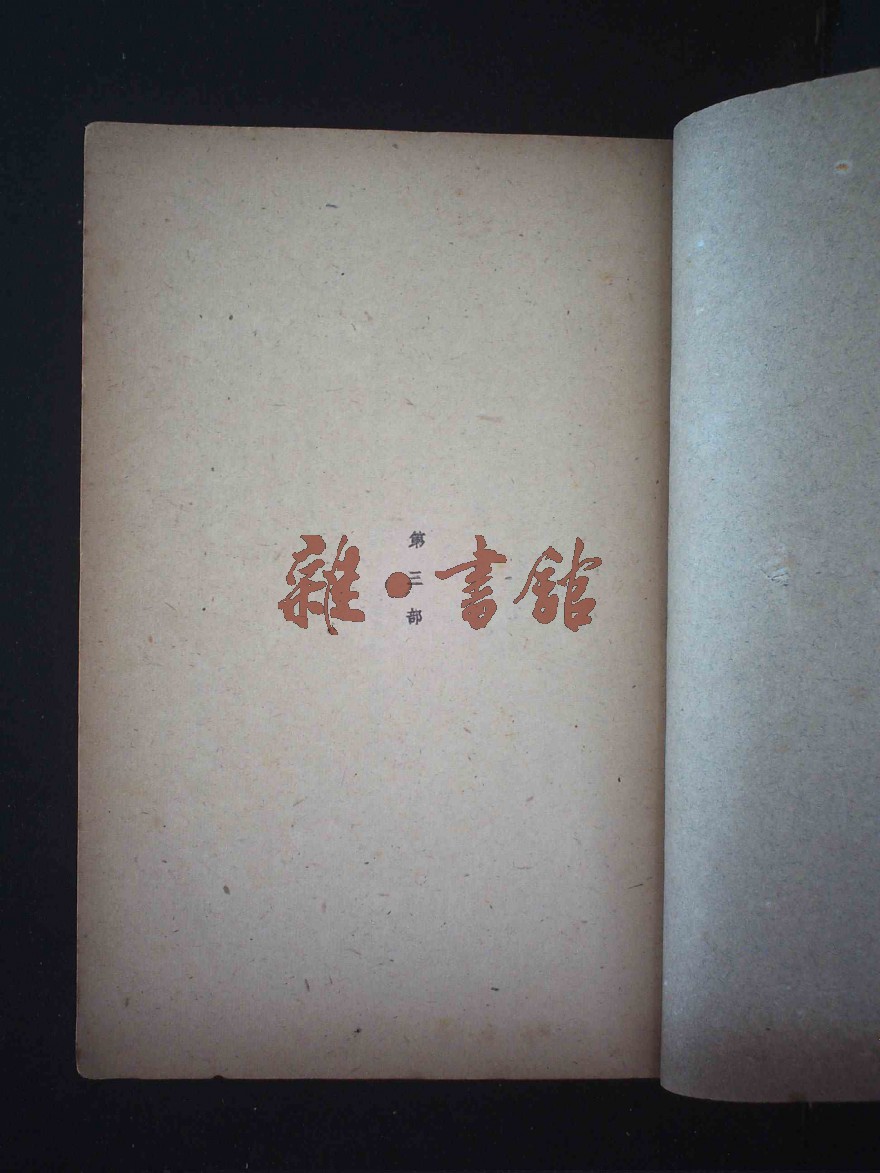 第三部
雜·書館